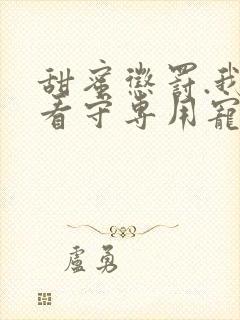 甜蜜懲罰.我
看守專用寵
盧勇